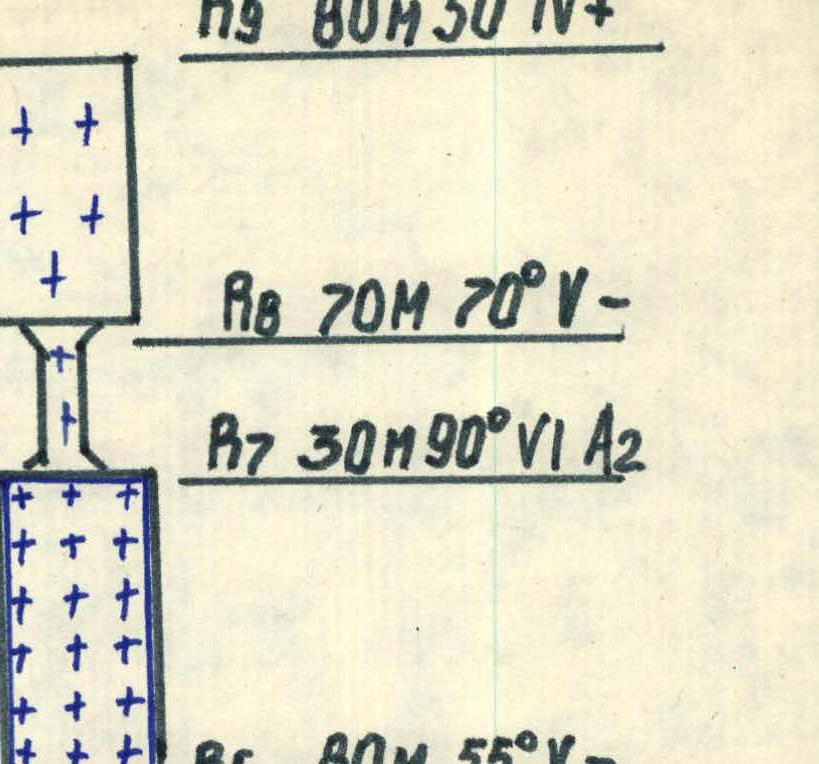 R9 80М 50 IV+
R8 70М 70° V-
R7 30М 90° VI A2
80М 55° V-